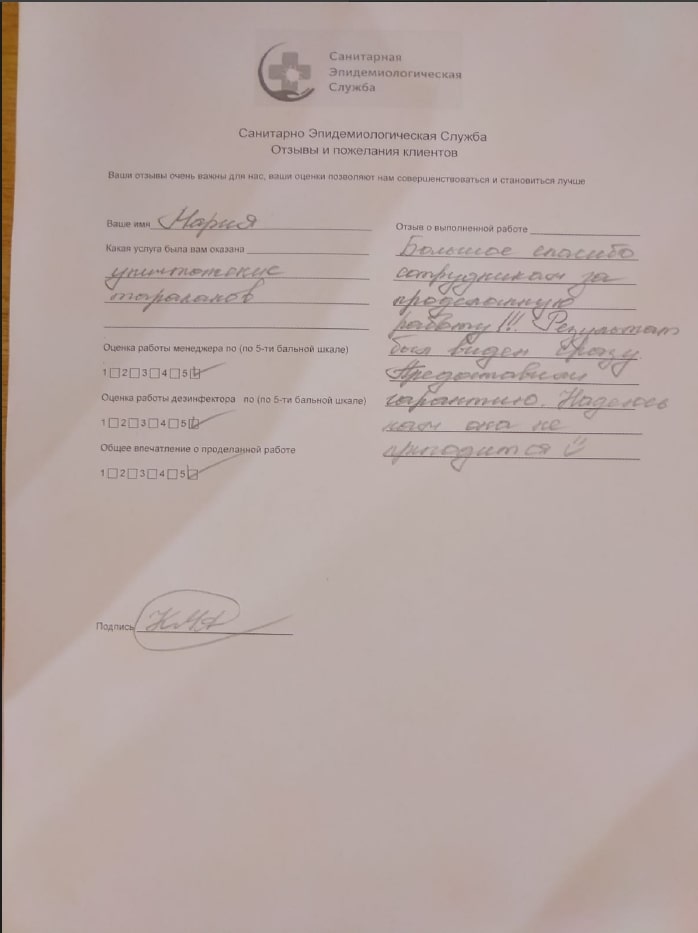 Санитарная
Эпидемиологическая
Служба
Санитарно Эпидемиологическая Служба
Отзывы и пожелания клиентов
Ваши отзывы очень важны для нас, ваши оценки позволяют нам совершенствоваться и становиться лучше
Ваше имя Мария
Какая услуга была вам оказана
уничтожение
тараканов
Оценка работы менеджера по (по 5-ти бальной шкале)
1 2 3 4 5
Оценка работы дезинфектора по (по 5-ти бальной шкале)
1 2 3 4 5
Общее впечатление о проделанной работе
1 2 3 4 5
Отзыв о выполненной работе
Большое спасибо
сотрудникам за
проделанную
работу!!! Результат
был виден сразу.
Предоставили
гарантию. Надеюсь
нам она не
пригодится
Подпись КМЯ